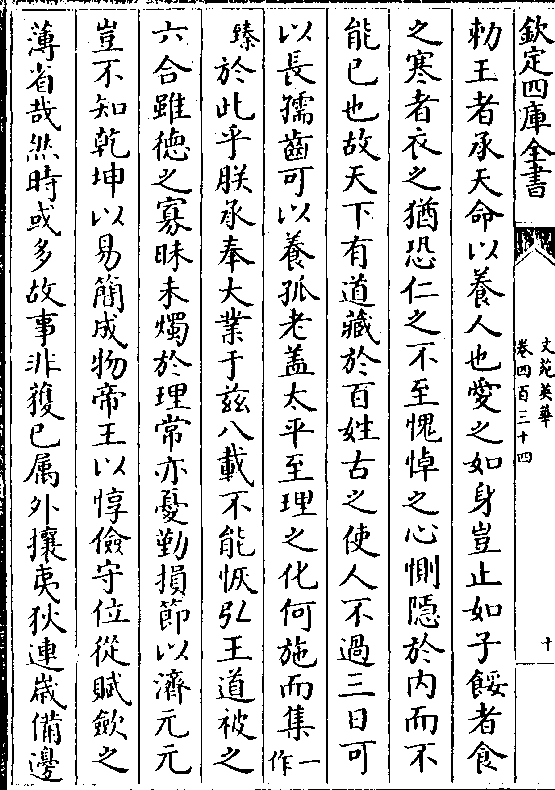 欽定四庫全書
文苑英華
卷四百三十四
十
勅王者承天命以養人也愛之如身豈止如子餒者食
之寒者衣之猶恐仁之不至愧悼之心惻隱於內而不
能已也故天下有道藏於百姓古之使人不過三日可
以長孺齒可以養孤老盖太平至理之化何施而集一作
臻於此乎朕承奉大業于兹八載不能恢弘王道被之
六合雖德之寡昧未燭於理常亦憂勤損節以濟元元
豈不知乾坤以易簡成物帝王以惇儉守位從賦歛之
薄省哉然時或多故事非獲已属外攘夷狄連歳備邊